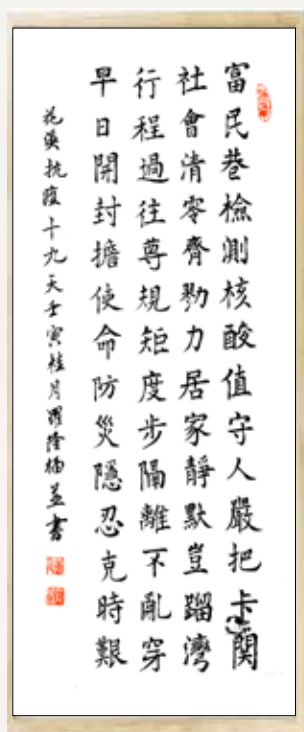 富民巷檢測核酸值守人嚴把卡関
社會清零齊勠力居家靜默豈蹓灣
行程過往尊規矩度步隔離不亂穿
早日開封擔使命防災隱忍克時艱
抗疫十九天壬寅桂月羅隆楠并書